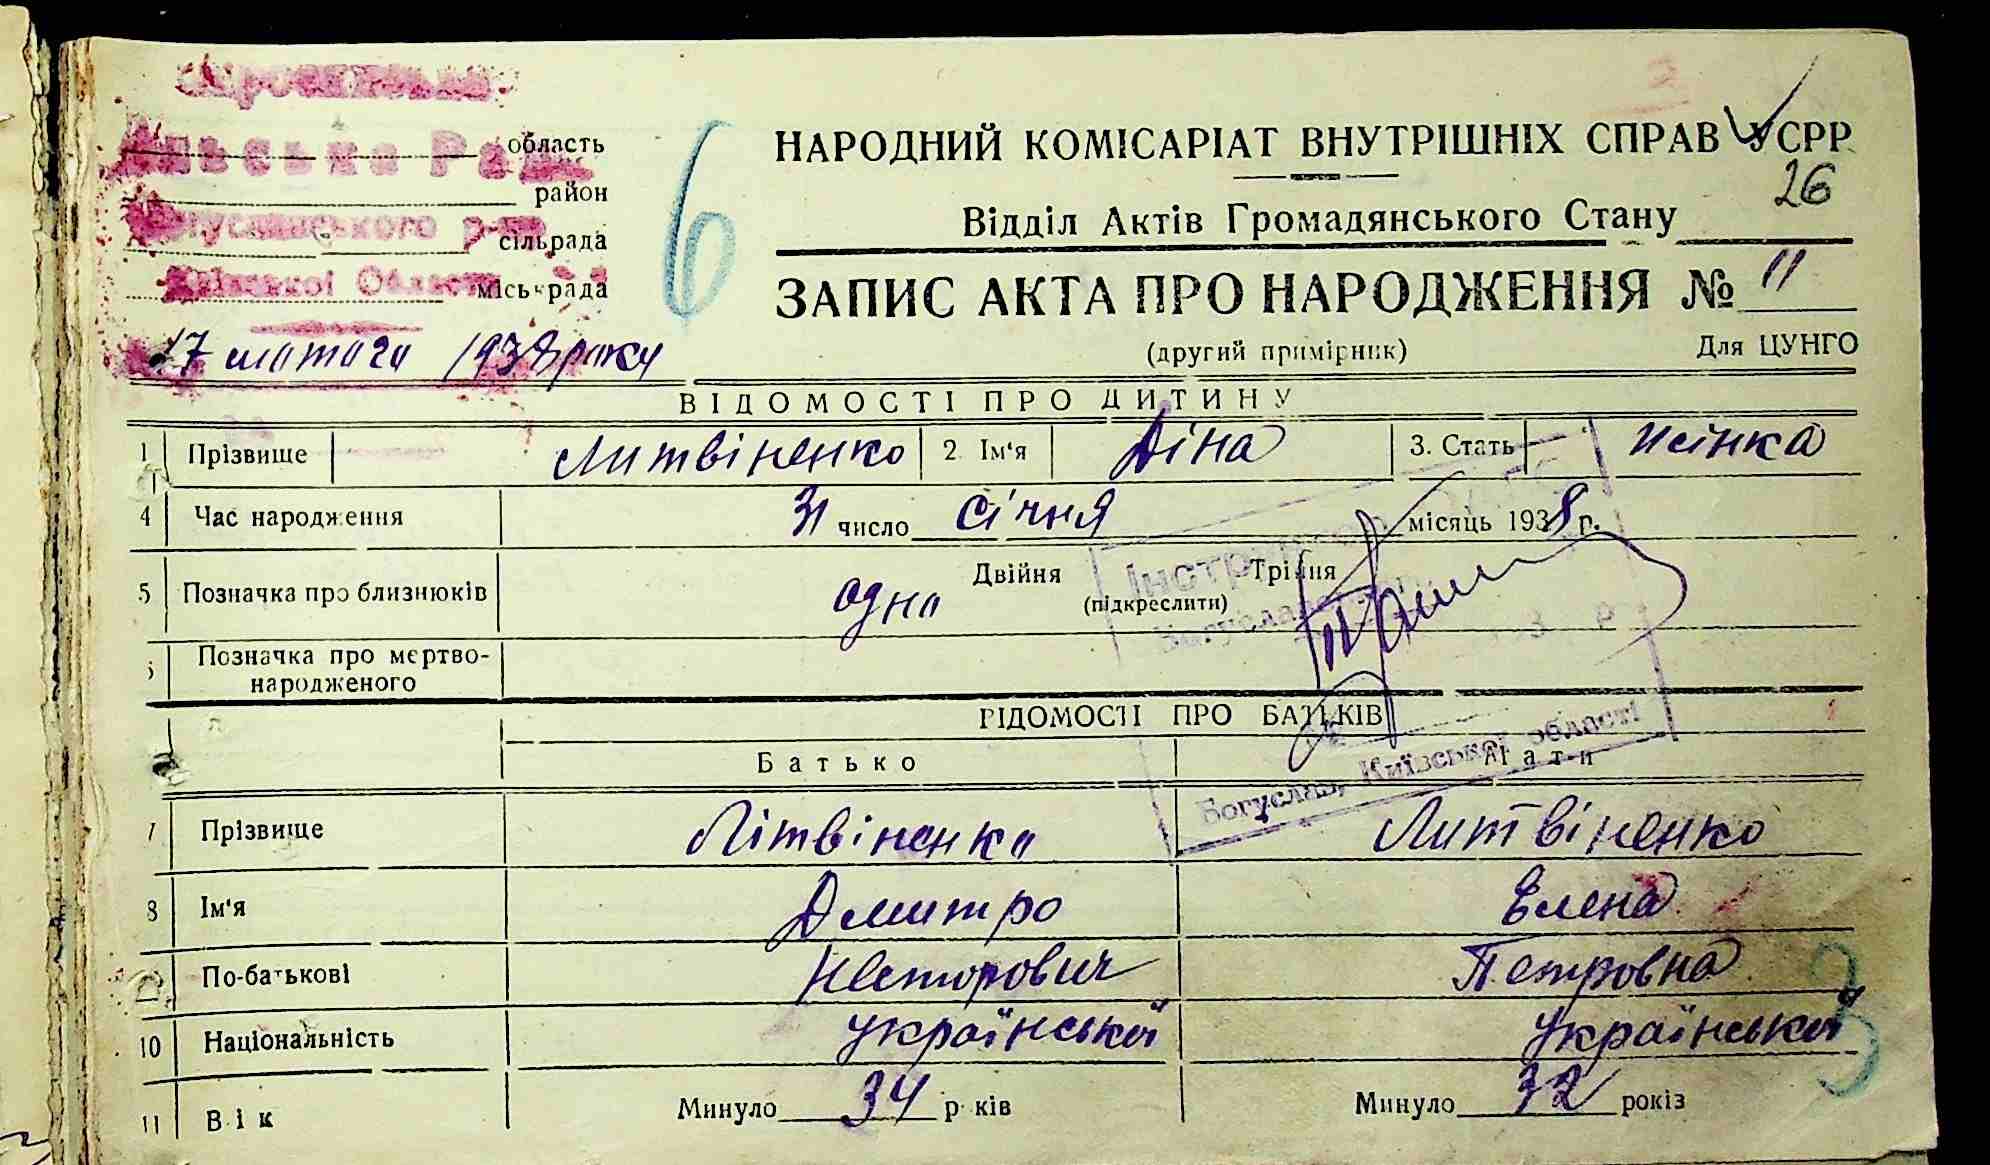 область
район
Богуславського р-ну
сільрада
Київської Області
міськрада
6
НАРОДНИЙ КОМІСАРІАТ ВНУТРІШНІХ СПРАВ УСРР
26
Відділ Актів Громадянського Стану
ЗАПИС АКТА ПРО НАРОДЖЕННЯ № 11
17 лютого 1938 року
(другий примірник) Для ЦУНГО
ВІДОМОСТІ ПРО ДИТИНУ
1 Прізвище Литвіненко 2. Ім'я Діна 3. Стать жінка
4 Час народження 31 число січня місяць 1938 р.
5 Позначка про близнюків одна Двійня Трійня
(підкреслити)
Позначка про мертво-
народженого
ВІДОМОСТІ ПРО БАТЬКІВ
Батько Мати
Богуслав, Київської області
7 Прізвище Літвіненко Литвіненко
8 Ім'я Дмитро Елена
По-батькові Несторович Петровна
10 Національність української української
3
11 Вік Минуло 34 років Минуло 32 років